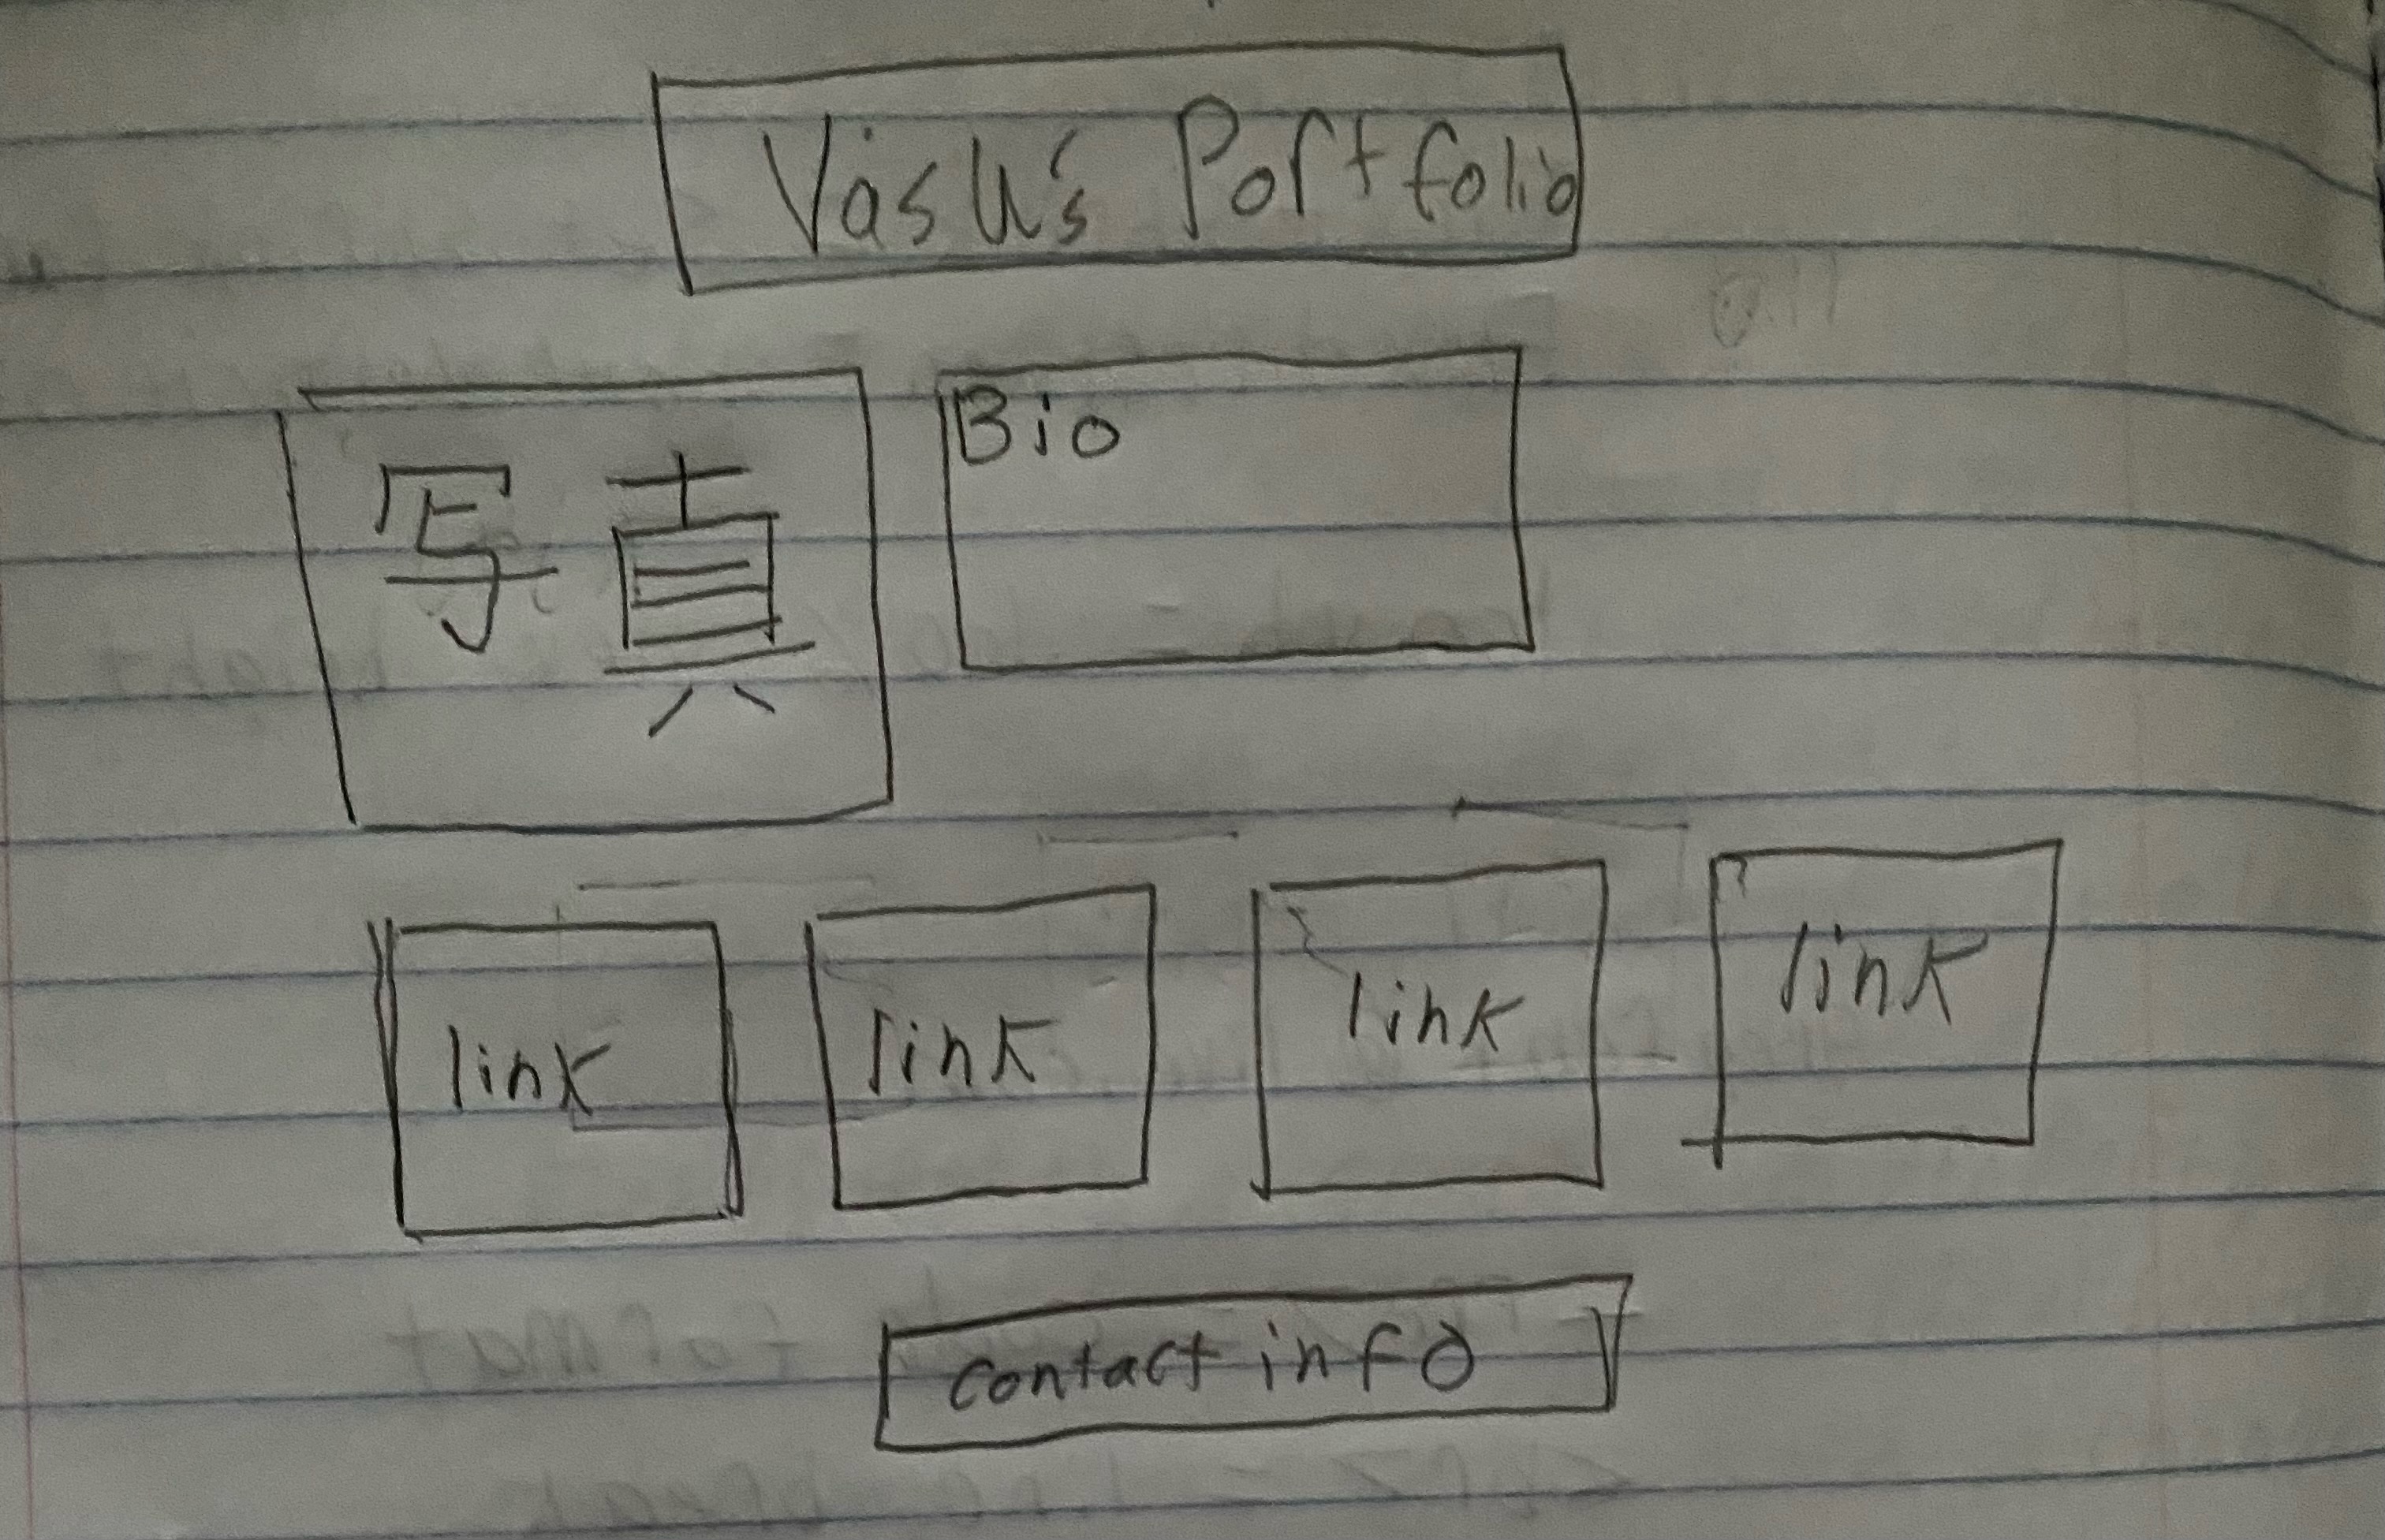 Vasu's Portfolio
写真
Bio
link
link
link
link
contact info